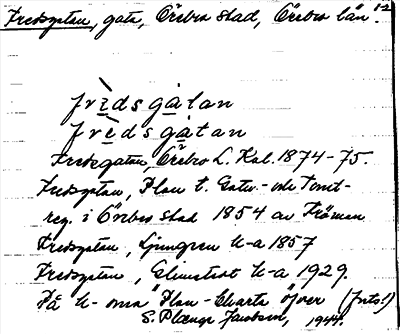 Fredsgatan, gata, Örebro stad, Örebro län. 12
frìdsgåtan
frèdsgåtan
Fredsgatan, Örebro L. Kal. 1874-75.
Fredsgatan, Plan t. Gatu- och Tomt-
reg. i Örebro stad 1854 av Fröman
Fredsgatan, Ljunggren U-a 1857
Fredsgatan, U-a 1929.
På U-orna "Plan-Charta Öfver (forts!)
S. Jacobson, 1944.